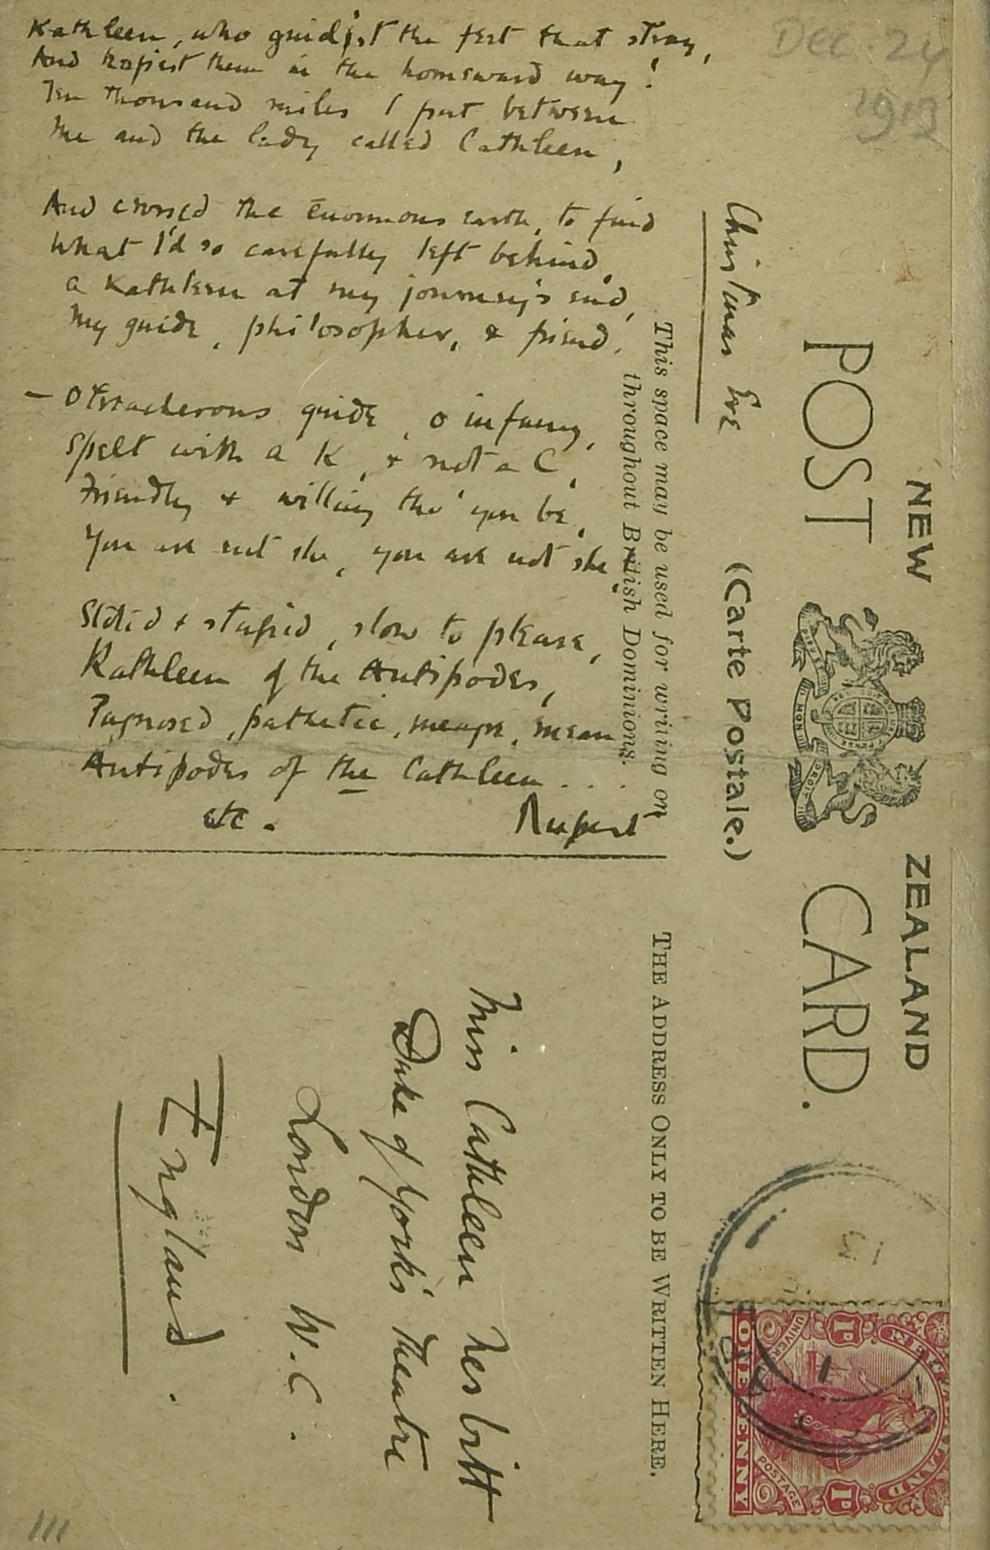 Kathleen, who guid'st the feet that stray,
And keepest them in the homeward way!
Ten thousand miles I put between
Me and the lady called Cathleen,
And crossed the enormous earth, to find
What I'd so carefully left behind,
a Kathleen at my journey's end,
My guide, philosopher, & friend.
— O treacherous guide, o infamy,
Spelt with a K, & not a C,
Friendly & willing tho' you be,
You are not she, you are not she,
Stolid & stupid, slow to please,
Kathleen of the Antipodes,
pathetic, meagre, mean
Antipodes of the Cathleen ....
etc. Rupert
Dec. 24
1913
Christmas Eve
This space may be used for writing on
throughout British Dominions.
NEW ZEALAND
POST CARD.
(Carte Postale.)
THE ADDRESS ONLY TO BE WRITTEN HERE.
Miss Cathleen Nesbitt
Duke of York's Theatre
London W.C.
England.
ONE PENNY
POSTAGE
1D
1D
111